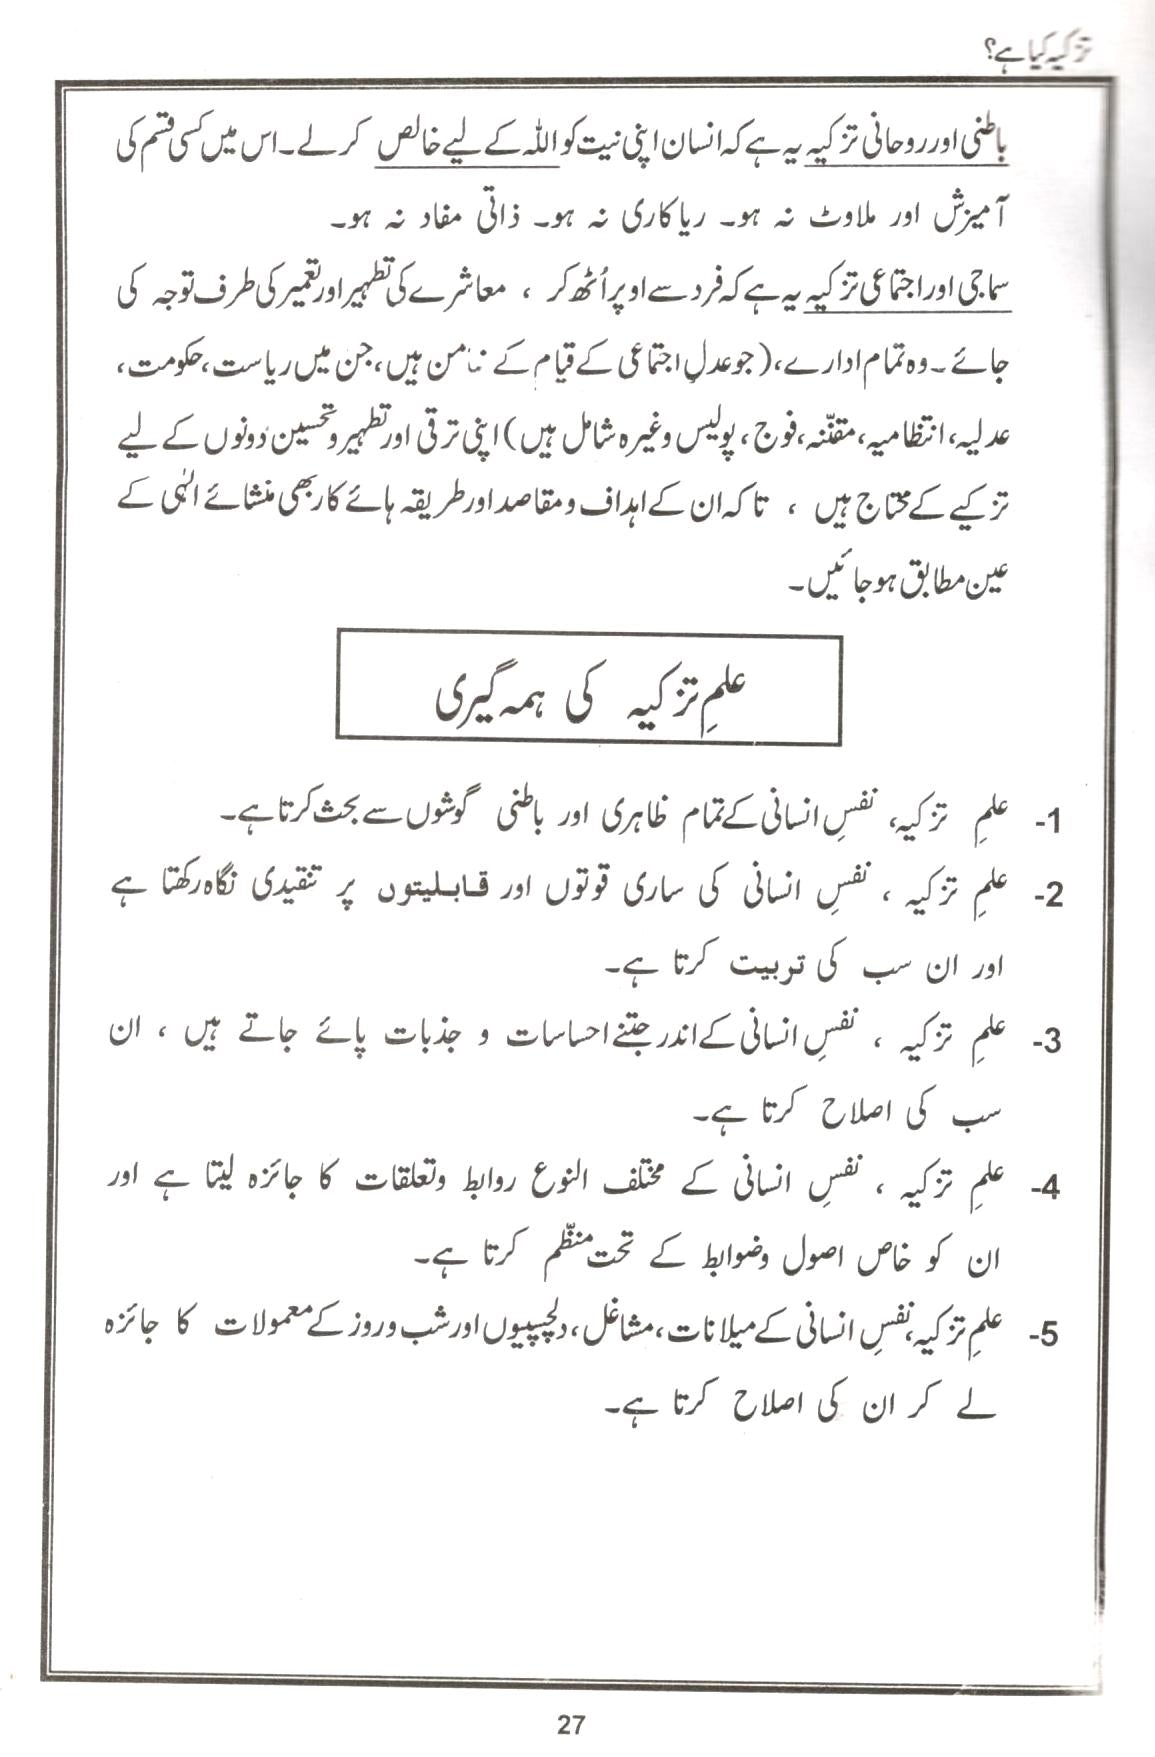 تزکیہ کیا ہے؟
باطنی اور روحانی تزکیہ یہ ہے کہ انسان اپنی نیت کو اللہ کے لیے خالص کر لے۔ اس میں کسی قسم کی
آمیزش اور ملاوٹ نہ ہو۔ ریاکاری نہ ہو۔ ذاتی مفاد نہ ہو۔
سماجی اور اجتماعی تزکیہ یہ ہے کہ فرد سے اوپر اُٹھ کر ، معاشرے کی تطہیر اور تعمیر کی طرف توجہ کی
جائے۔ وہ تمام ادارے، (جو عدلِ اجتماعی کے قیام کے ضامن ہیں، جن میں ریاست، حکومت،
عدلیہ، انتظامیہ، مقنّنہ، فوج، پولیس وغیرہ شامل ہیں) اپنی ترقی اور تطہیر و تحسین دونوں کے لیے
تزکیے کے محتاج ہیں ، تاکہ ان کے اہداف و مقاصد اور طریقہ ہائے کار بھی منشائے الٰہی کے
عین مطابق ہو جائیں۔
علمِ تزکیہ کی ہمہ گیری
1- علمِ تزکیہ، نفسِ انسانی کے تمام ظاہری اور باطنی گوشوں سے بحث کرتا ہے۔
2- علمِ تزکیہ ، نفسِ انسانی کی ساری قوتوں اور قابلیتوں پر تنقیدی نگاہ رکھتا ہے
اور ان سب کی تربیت کرتا ہے۔
3- علمِ تزکیہ ، نفسِ انسانی کے اندر جتنے احساسات و جذبات پائے جاتے ہیں ، ان
سب کی اصلاح کرتا ہے۔
4- علمِ تزکیہ ، نفسِ انسانی کے مختلف النوع روابط وتعلقات کا جائزہ لیتا ہے اور
ان کو خاص اصول وضوابط کے تحت منظّم کرتا ہے۔
5- علمِ تزکیہ، نفسِ انسانی کے میلانات، مشاغل، دلچسپیوں اور شب و روز کے معمولات کا جائزہ
لے کر ان کی اصلاح کرتا ہے۔
27